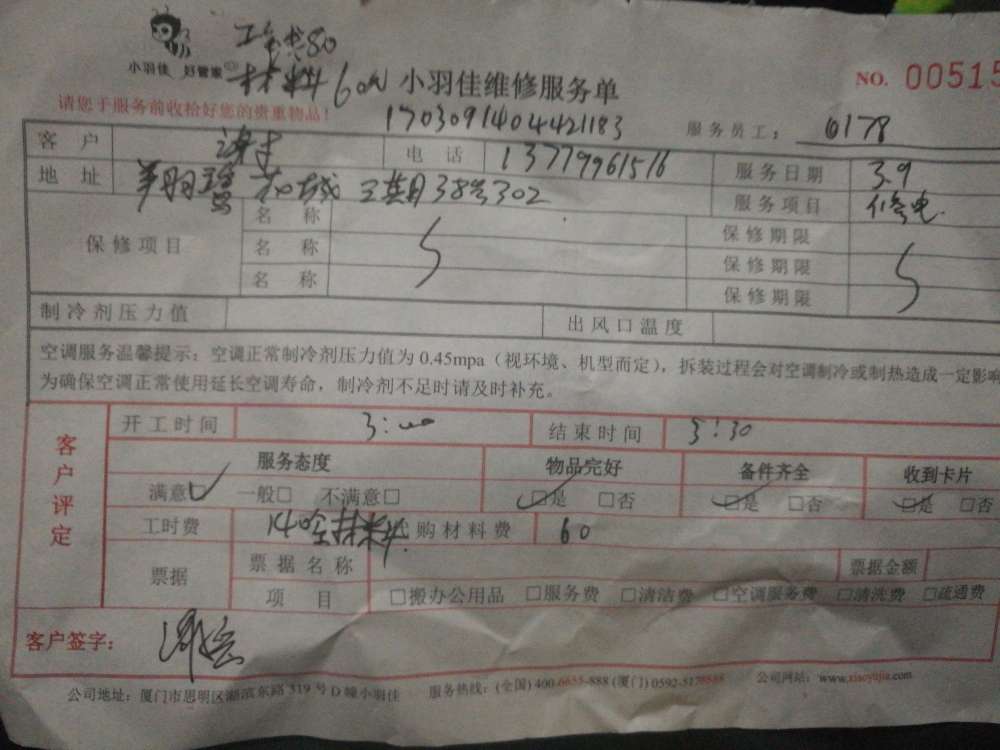 工钱80
小羽佳 好管家 材料60元 小羽佳维修服务单 NO. 00515
请您于服务前收拾好您的贵重物品!
1703091404421183 服务员工: 0178
客户 电话 13779961516 服务日期 3.9
地址 三期38号302 服务项目 修电
保修项目 名称 保修期限
名称 保修期限
名称 保修期限
制冷剂压力值 出风口温度
空调服务温馨提示:空调正常制冷剂压力值为0.45mpa(视环境、机型而定),拆装过程会对空调制冷或制热造成一定影响
为确保空调正常使用延长空调寿命,制冷剂不足时请及时补充。
客户评定
开工时间 3:00 结束时间 3:30
服务态度 物品完好 备件齐全 收到卡片
满意□ 一般□ 不满意□ □是 □否 □是 □否 □是 □否
工时费 140含材料 购材料费 60
票据 票据名称 票据金额
项目 □搬办公用品 □服务费 □清洁费 □空调服务费 □清洗费 □疏通费
客户签字:
公司地址:厦门市思明区湖滨东路319号D幢小羽佳 服务热线:(全国)400-6655-888 (厦门)0592-5178888 公司网站:www.xiaoyujia.com